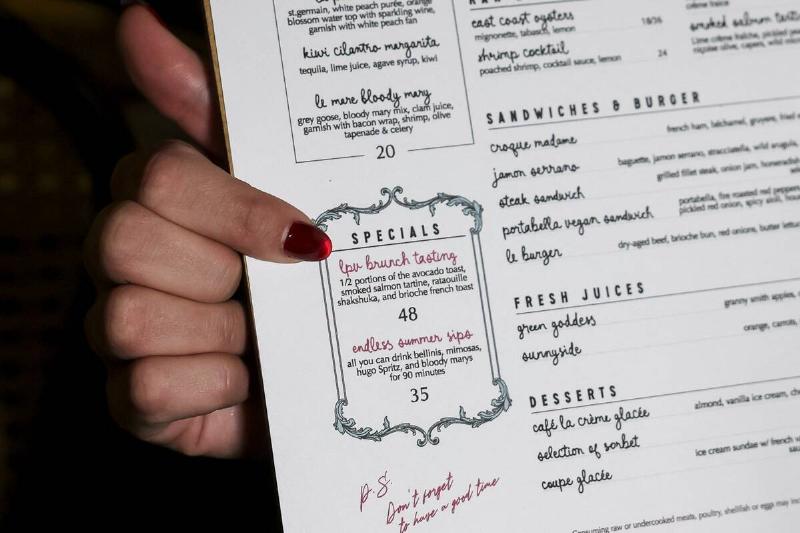 st.germain, white peach purée, orange
blossom water top with sparkling wine,
garnish with white peach fan
kiwi cilantro margarita
tequila, lime juice, agave syrup, kiwi
le mare bloody mary
grey goose, bloody mary mix, clam juice,
garnish with bacon wrap, shrimp, olive
tapenade & celery
20
SPECIALS
lpv brunch tasting
1/2 portions of the avocado toast,
smoked salmon tartine, rataouille
shakshuka, and brioche french toast
48
endless summer sips
all you can drink bellinis, mimosas,
hugo Spritz, and bloody marys
for 90 minutes
35
P.S.
Don't forget
to have a good time
east coast oysters 18/36
mignonette, tabasco, lemon
shrimp cocktail 24
poached shrimp, cocktail sauce, lemon
crème fraîche
smoked salmon
SANDWICHES & BURGER
croque madame french ham, béchamel, gruyere, fried
jamon serrano baguette, jamon serrano, stracciatella, wild
steak sandwich grilled fillet steak, onion jam,
portabella vegan sandwich portabella, fire roasted red
pickled red onion, spicy aioli,
le burger dry-aged beef, brioche bun, red onions, butter
FRESH JUICES
green goddess granny smith apples,
sunnyside orange, carrots,
DESSERTS
café la crème glacée almond, vanilla ice cream,
selection of sorbet
coupe glacée ice cream sundae w/ french
Consuming raw or undercooked meats, poultry, shellfish or eggs may